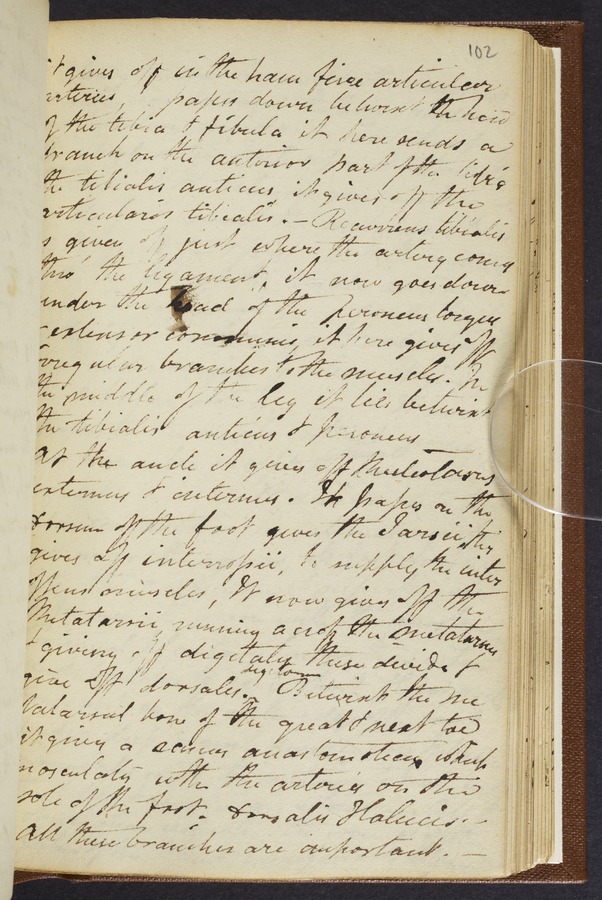 102
it gives off in the ham five articular
arteries, passes down betwixt the head
of the tibia & fibula it here sends a
branch on the anterior part of the tibia
the tibialis anticus it gives off the
articularis tibialis. — Recurrens tibialis
is given off just where the artery comes
thro' the ligament, it now goes down
under the head of the peroneus longus
extensor communis, it here gives off
irregular branches to the muscles. In
the middle of the leg it lies betwixt
the tibialis anticus & peroneus
at the ancle it gives off Malleolares
externus & internus. It passes on the
dorsum of the foot gives the Tarsii, they
gives off interossii, to supply the inter
muscles, It now gives off the
Metatarsii running across the metatarsus
& giving off digitals these divide &
give off dorsales. Betwixt the me
tatarsal bone of the great & next toe
it gives a ramus anastomoticus which
inosculates with the arteries on the
sole of the foot. dorsalis Halucis. —
all these branches are important. —